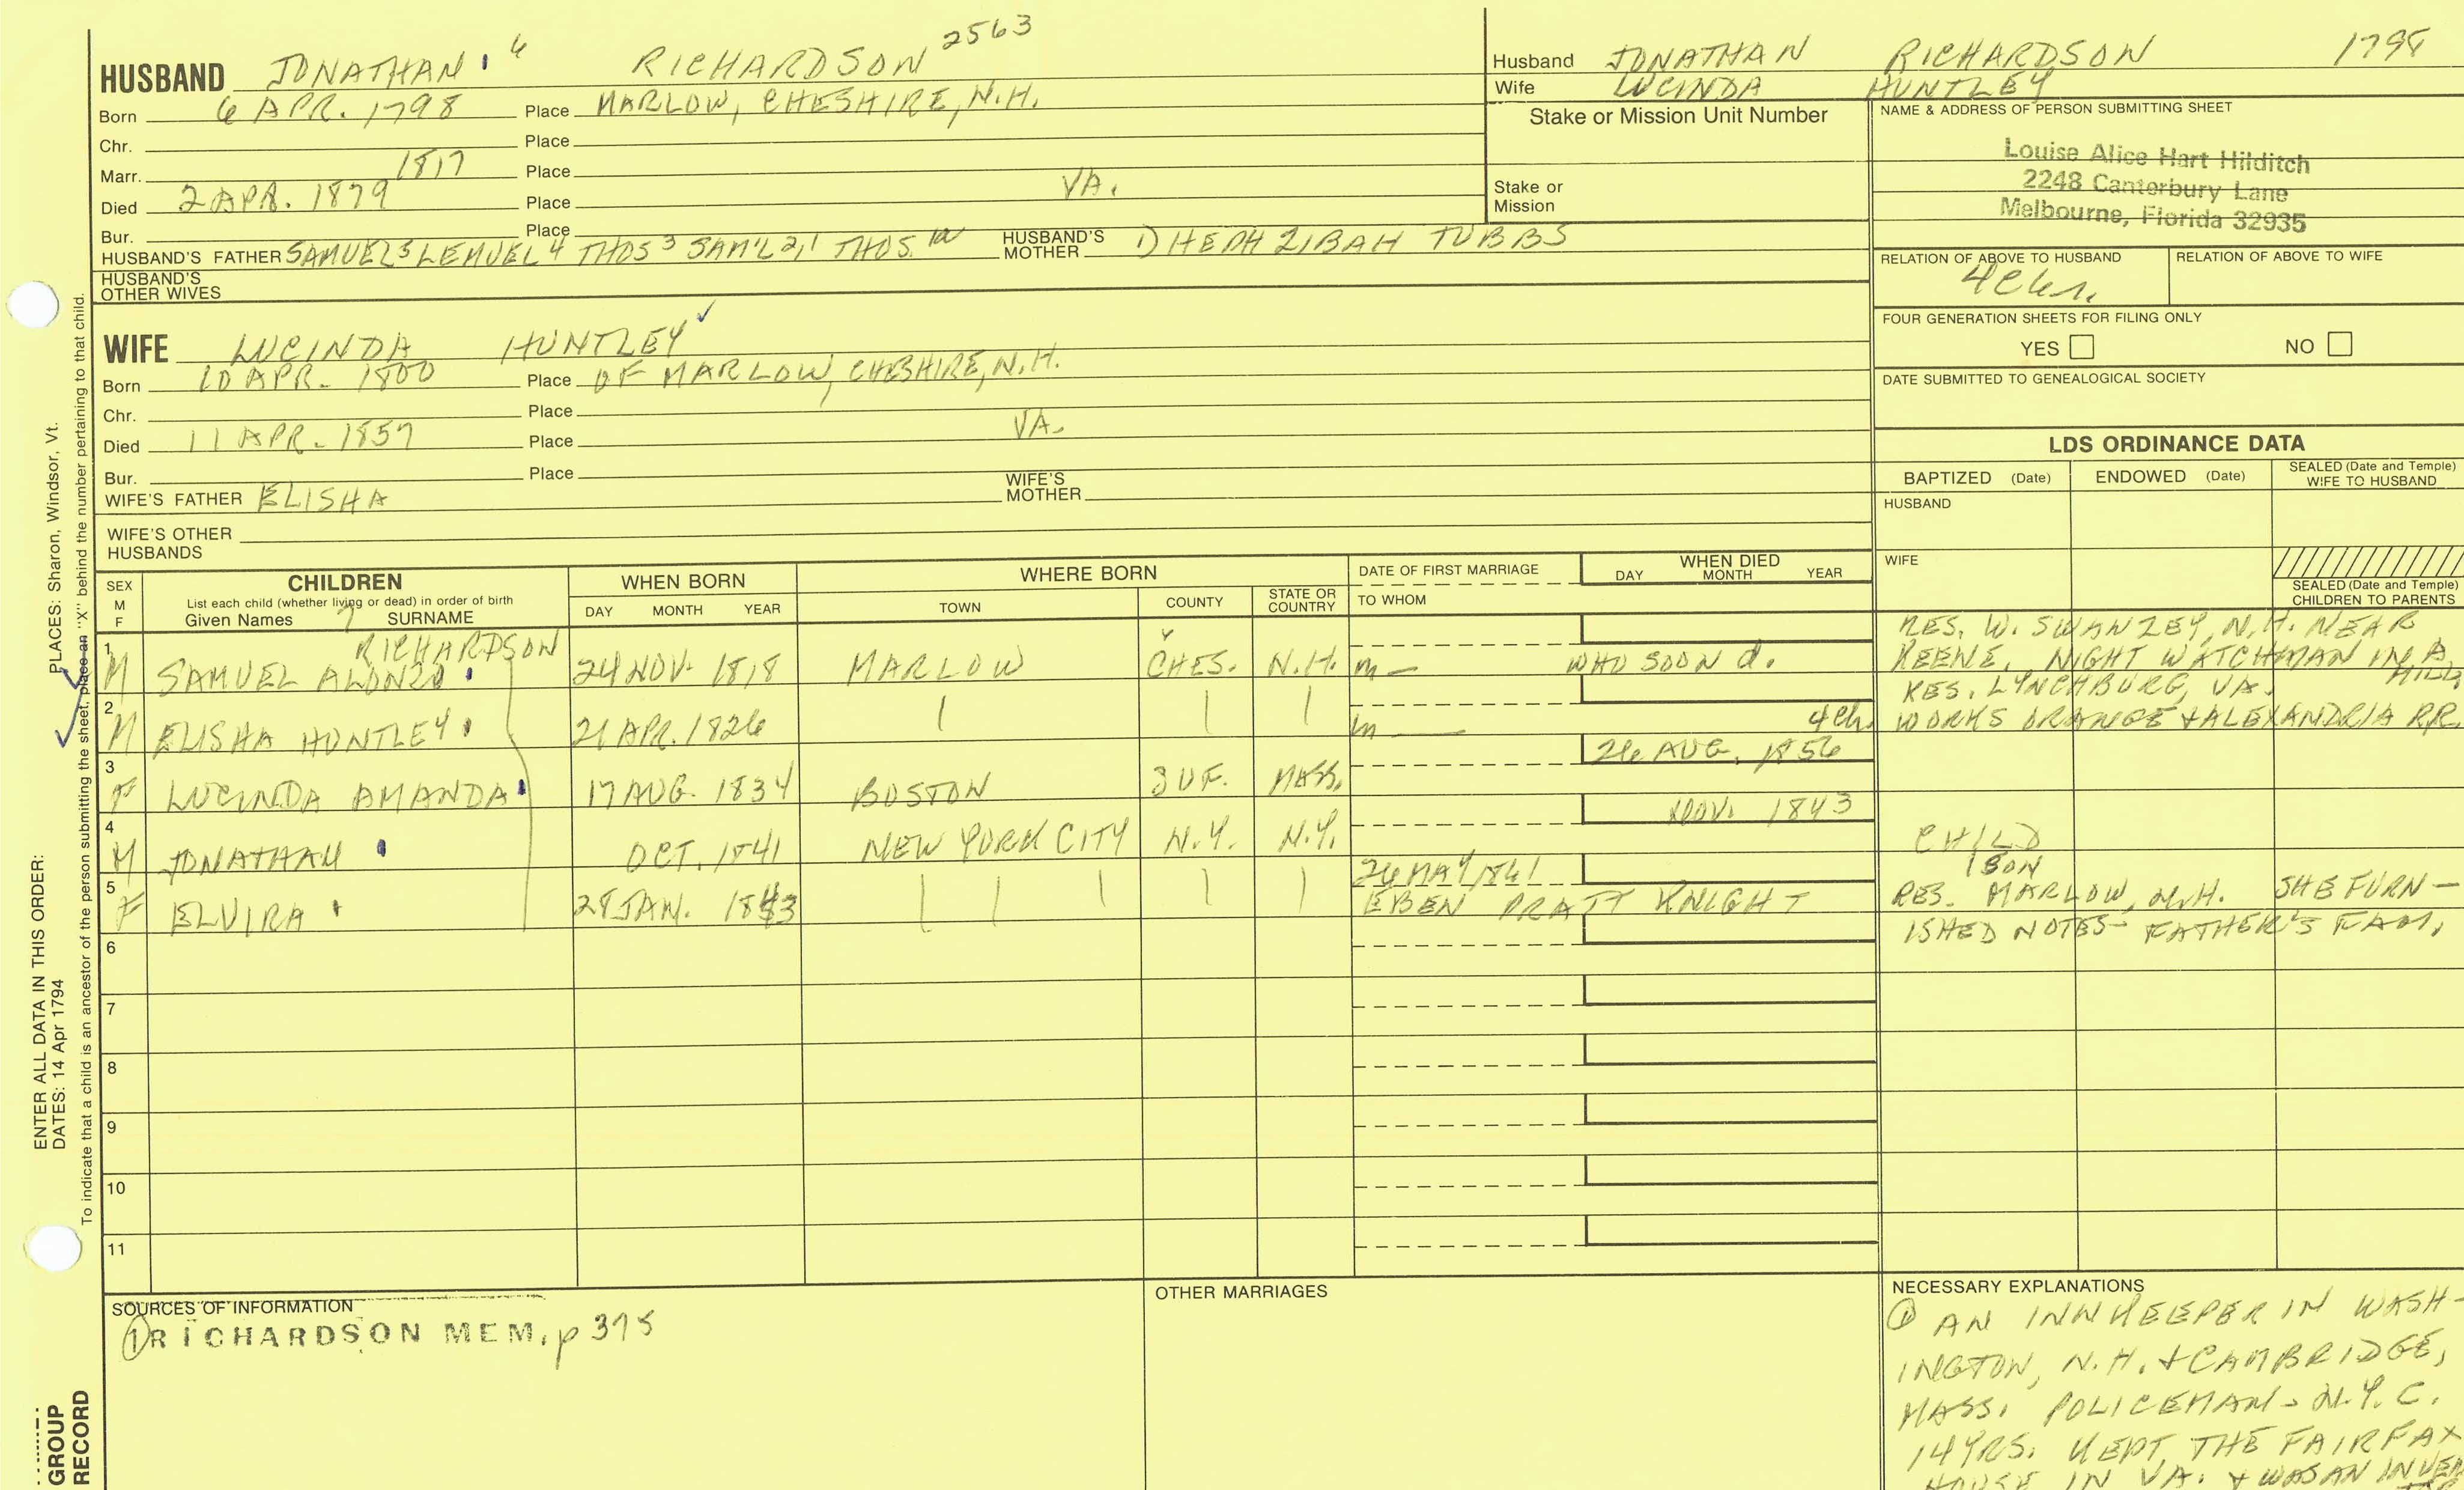 HUSBAND JONATHAN 6 RICHARDSON 2563
Born 6 APR. 1798 Place MARLOW, CHESHIRE, N.H.
Chr. Place
Marr. 1817 Place
Died 2 APR. 1879 Place VA.
Bur. Place
HUSBAND'S FATHER SAMUEL 5 LEMUEL 4 THOS 3 SAM'L 2,1 THOS. HUSBAND'S MOTHER 1) HEPHZIBAH TUBBS
HUSBAND'S OTHER WIVES
Husband JONATHAN RICHARDSON 1798
Wife LUCINDA HUNTLEY
Stake or Mission Unit Number
Stake or
Mission
NAME & ADDRESS OF PERSON SUBMITTING SHEET
Louise Alice Hart Hilditch
2248 Canterbury Lane
Melbourne, Florida 32935
RELATION OF ABOVE TO HUSBAND RELATION OF ABOVE TO WIFE
FOUR GENERATION SHEETS FOR FILING ONLY
YES NO
DATE SUBMITTED TO GENEALOGICAL SOCIETY
WIFE LUCINDA HUNTLEY
Born 10 APR. 1800 Place OF MARLOW, CHESHIRE, N.H.
Chr. Place
Died 11 APR. 1857 Place VA.
Bur. Place
WIFE'S FATHER ELISHA WIFE'S MOTHER
WIFE'S OTHER
HUSBANDS
LDS ORDINANCE DATA
BAPTIZED (Date) ENDOWED (Date) SEALED (Date and Temple) WIFE TO HUSBAND
HUSBAND
WIFE
SEALED (Date and Temple) CHILDREN TO PARENTS
SEX M F
CHILDREN
List each child (whether living or dead) in order of birth
Given Names 7 SURNAME
WHEN BORN
DAY MONTH YEAR
WHERE BORN
TOWN COUNTY STATE OR COUNTRY
DATE OF FIRST MARRIAGE
TO WHOM
WHEN DIED
DAY MONTH YEAR
1 M SAMUEL ALONZO RICHARDSON 24 NOV. 1818 MARLOW CHES. N.H. m— WHO SOON d. RES. W. SWANZEY, N.H. NEAR
KEENE. NIGHT WATCHMAN IN A MILL
2 M ELISHA HUNTLEY 21 APR. 1826 m — 4 ch. RES. LYNCHBURG, VA.
WORKS ORANGE & ALEXANDRIA RR.
3 F LUCINDA AMANDA 17 AUG. 1834 BOSTON SUF. MASS. 26 AUG. 1856
4 M JONATHAN OCT. 1841 NEW YORK CITY N.Y. N.Y. NOV. 1843 CHILD
5 F ELVIRA 28 JAN. 1843 26 MAY 1861 EBEN PRATT KNIGHT 1 SON
RES. MARLOW, N.H. SHE FURN-
ISHED NOTES - FATHER'S FAM.
6
7
8
9
10
11
SOURCES OF INFORMATION
① RICHARDSON MEM. p 375
OTHER MARRIAGES
NECESSARY EXPLANATIONS
① AN INNKEEPER IN WASH-
INGTON, N.H. & CAMBRIDGE,
MASS. POLICEMAN - N.Y.C.
14 YRS. KEPT THE FAIRFAX
HOUSE IN VA. & WAS AN
ENTER ALL DATA IN THIS ORDER:
DATES: 14 Apr 1794
PLACES: Sharon, Windsor, Vt.
To indicate that a child is an ancestor of the person submitting the sheet, place an "X" behind the number pertaining to that child.
GROUP
RECORD